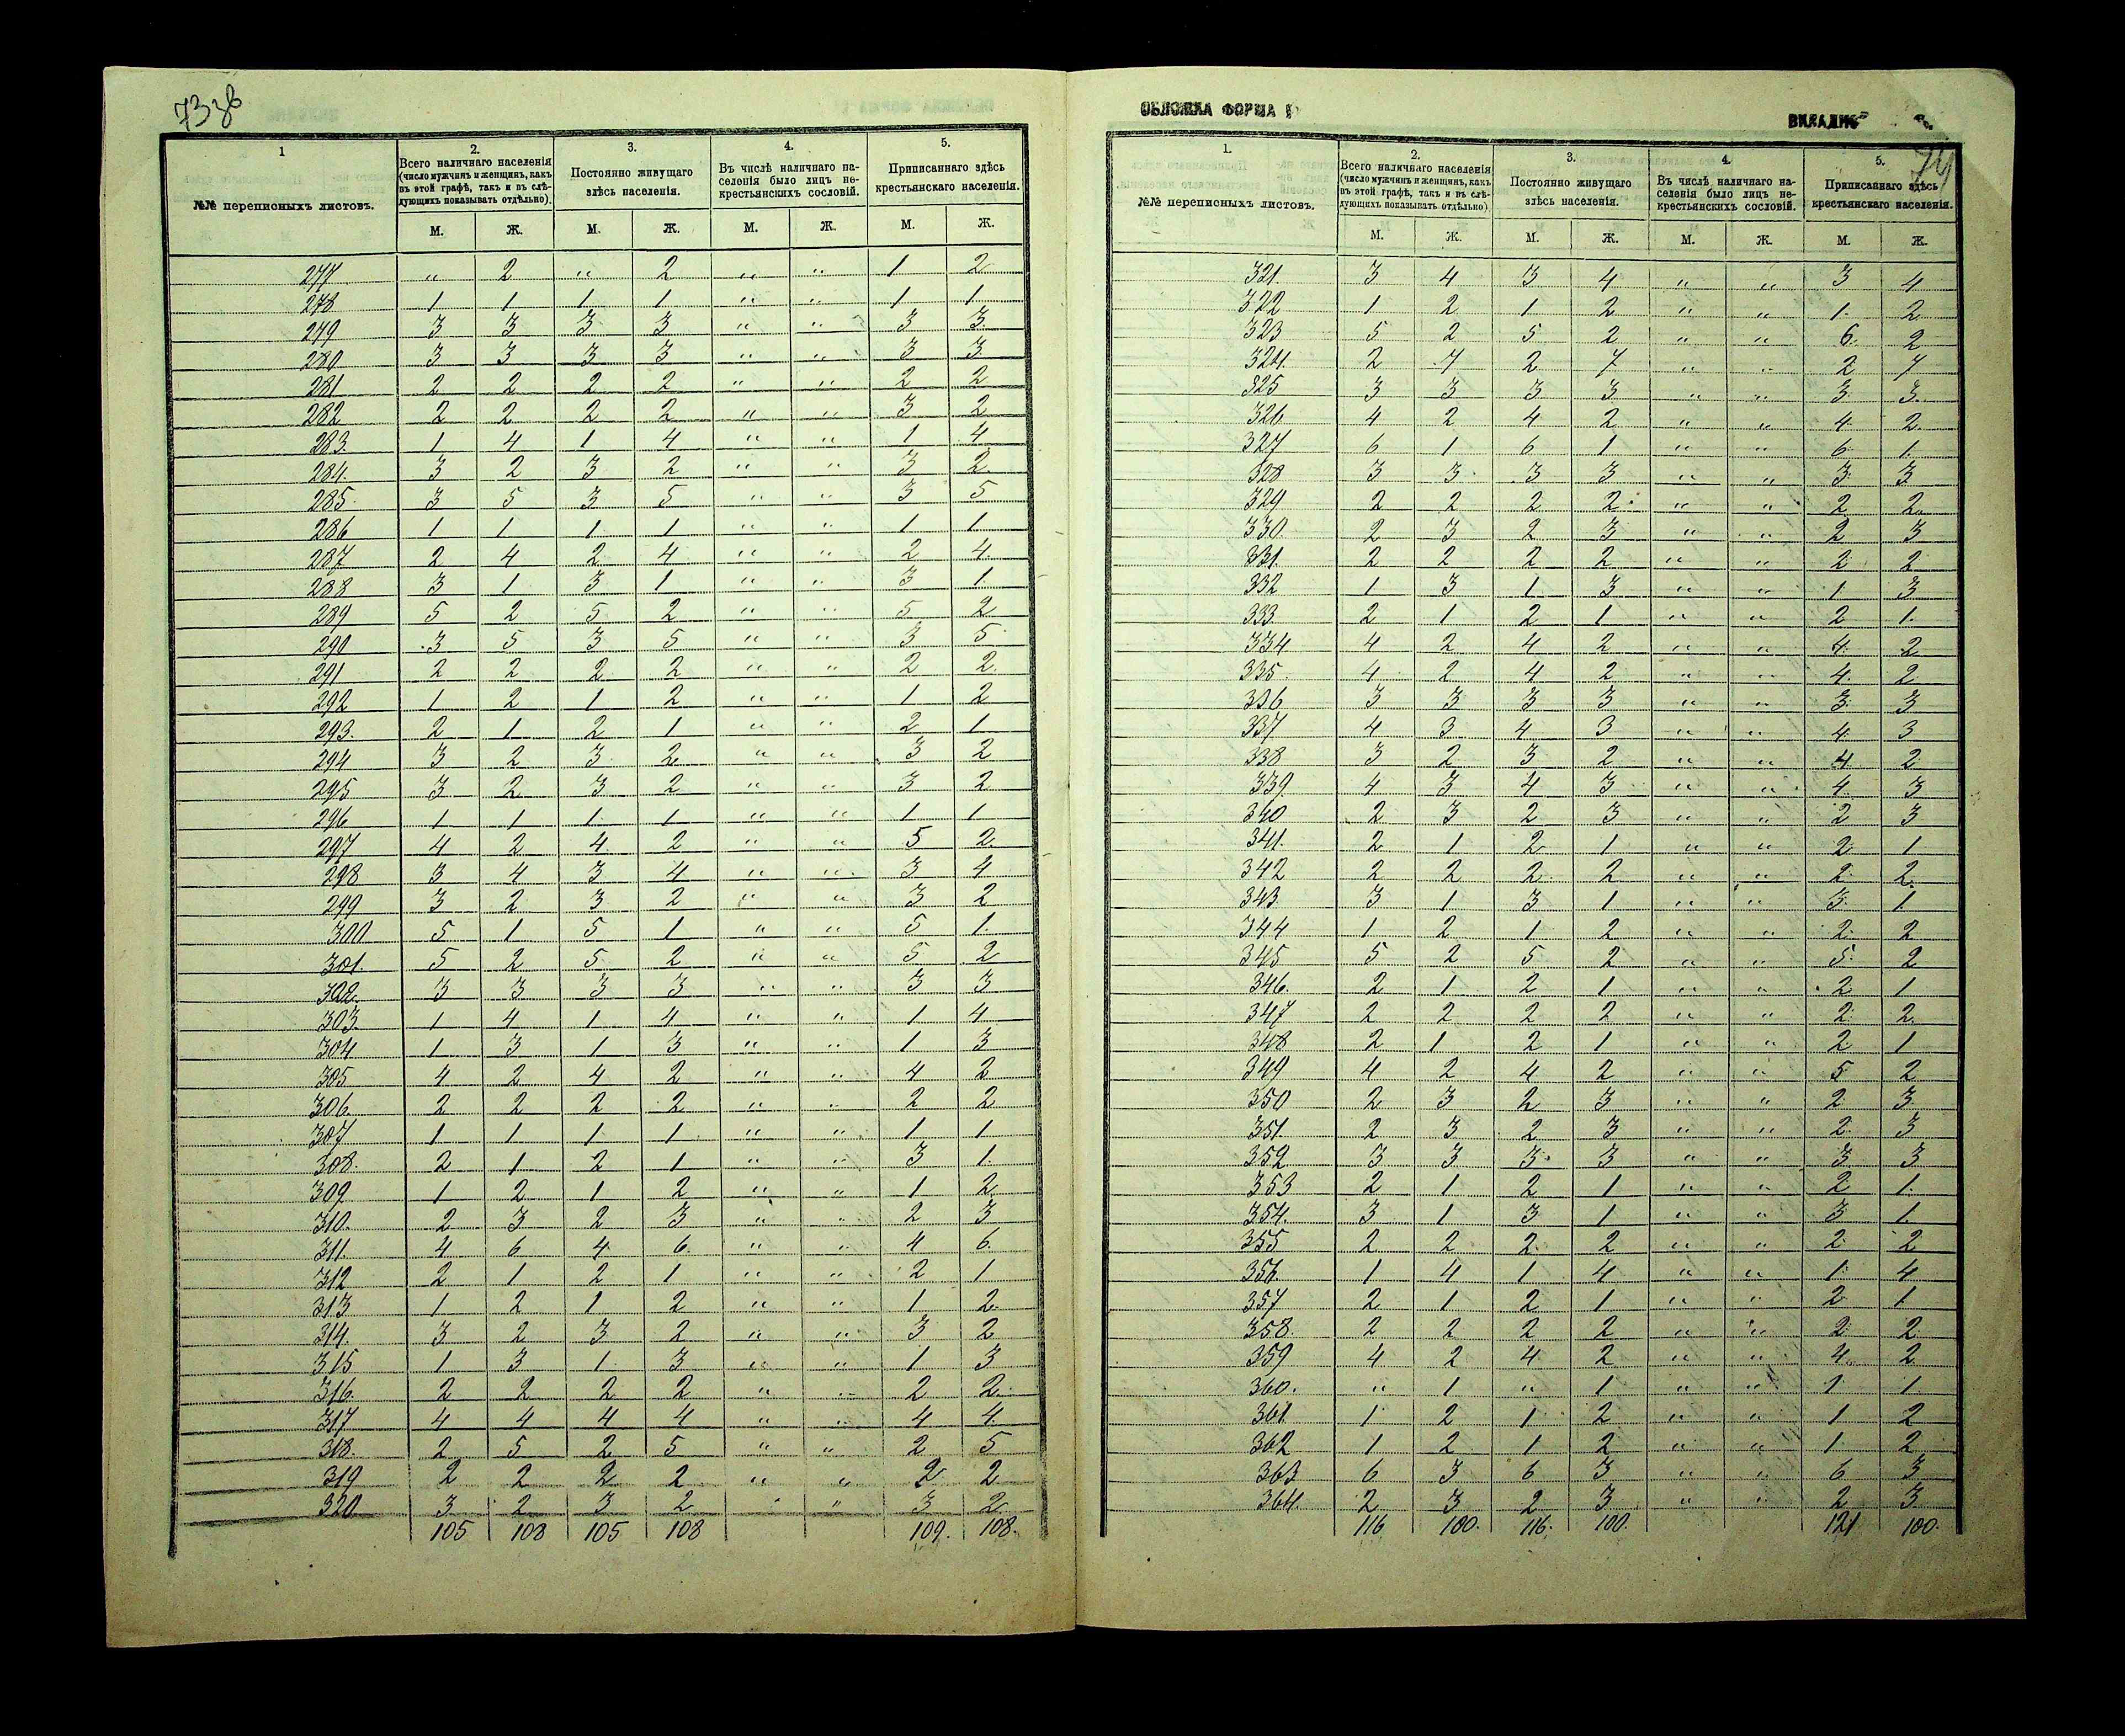 73 зв
1
2.
3.
4.
5.
№№ переписныхъ листовъ.
Всего наличнаго населенія
(число мужчинъ и женщинъ, какъ
въ этой графѣ, такъ и въ слѣ-
дующихъ показывать отдѣльно).
Постоянно живущаго
здѣсь населенія.
Въ числѣ наличнаго на-
селенія было лицъ не-
крестьянскихъ сословій.
Приписаннаго здѣсь
крестьянскаго населенія.
М. Ж. М. Ж. М. Ж. М. Ж.
277 " 2 " 2 " " 1 2
278 1 1 1 1 " " 1 1
279 3 3 3 3 " " 3 3
280 3 3 3 3 " " 3 3
281 2 2 2 2 " " 2 2
282 2 2 2 2 " " 3 2
283. 1 4 1 4 " " 1 4
284. 3 2 3 2 " " 3 2
285. 3 5 3 5 " " 3 5
286 1 1 1 1 " " 1 1
287 2 4 2 4 " " 2 4
288 3 1 3 1 " " 3 1
289 5 2 5 2 " " 5 2
290 3 5 3 5 " " 3 5
291 2 2 2 2 " " 2 2
292 1 2 1 2 " " 1 2
293. 2 1 2 1 " " 2 1
294 3 2 3 2 " " 3 2
295 3 2 3 2 " " 3 2
296 1 1 1 1 " " 1 1
297 4 2 4 2 " " 5 2
298 3 4 3 4 " " 3 4
299 3 2 3 2 " " 3 2
300 5 1 5 1 " " 5 1
301. 5 2 5 2 " " 5 2
302. 3 3 3 3 " " 3 3
303. 1 4 1 4 " " 1 4
304 1 3 1 3 " " 1 3
305 4 2 4 2 " " 4 2
306. 2 2 2 2 " " 2 2
307 1 1 1 1 " " 1 1
308. 2 1 2 1 " " 3 1
309 1 2 1 2 " " 1 2
310. 2 3 2 3 " " 2 3
311. 4 6 4 6 " " 4 6
312 2 1 2 1 " " 2 1
313 1 2 1 2 " " 1 2
314. 3 2 3 2 " " 3 2
315 1 3 1 3 " " 1 3
316. 2 2 2 2 " " 2 2
317 4 4 4 4 " " 4 4
318. 2 5 2 5 " " 2 5
319 2 2 2 2 " " 2 2
320 3 2 3 2 " " 3 2
105 108 105 108 109. 108.
ОБЛОЖКА ФОРМА
74
1.
2.
3.
4.
5.
№№ переписныхъ листовъ.
Всего наличнаго населенія
(число мужчинъ и женщинъ, какъ
въ этой графѣ, такъ и въ слѣ-
дующихъ показывать отдѣльно)
Постоянно живущаго
здѣсь населенія.
Въ числѣ наличнаго на-
селенія было лицъ не-
крестьянскихъ сословій.
Приписаннаго здѣсь
крестьянскаго населенія.
М. Ж. М. Ж. М. Ж. М. Ж.
321 3 4 3 4 " " 3 4
322 1 2 1 2 " " 1 2
323 5 2 5 2 " " 6 2
324. 2 7 2 7 " " 2 7
325 3 3 3 3 " " 3 3
326 4 2 4 2 " " 4 2
327 6 1 6 1 " " 6 1
328 3 3 3 3 " " 3 3
329 2 2 2 2 " " 2 2
330 2 3 2 3 " " 2 3
331. 2 2 2 2 " " 2 2
332 1 3 1 3 " " 1 3
333. 2 1 2 1 " " 2 1
334 4 2 4 2 " " 4 2
335. 4 2 4 2 " " 4 2
336 3 3 3 3 " " 3 3
337 4 3 4 3 " " 4 3
338 3 2 3 2 " " 4 2
339. 4 3 4 3 " " 4 3
340 2 3 2 3 " " 2 3
341. 2 1 2 1 " " 2 1
342 2 2 2 2 " " 2 2
343 3 1 3 1 " " 3 1
344 1 2 1 2 " " 2 2
345 5 2 5 2 " " 5 2
346. 2 1 2 1 " " 2 1
347 2 2 2 2 " " 2 2
348 2 1 2 1 " " 2 1
349 4 2 4 2 " " 5 2
350 2 3 2 3 " " 2 3
351. 2 3 2 3 " " 2 3
352 3 3 3 3 " " 3 3
353 2 1 2 1 " " 2 1
354. 3 1 3 1 " " 3 1
355 2 2 2 2 " " 2 2
356. 1 4 1 4 " " 1 4
357 2 1 2 1 " " 2 1
358. 2 2 2 2 " " 2 2
359 4 2 4 2 " " 4 2
360. " 1 " 1 " " 1 1
361 1 2 1 2 " " 1 2
362 1 2 1 2 " " 1 2
363 6 3 6 3 " " 6 3
364. 2 3 2 3 " " 2 3
116 100. 116. 100. 121 100.